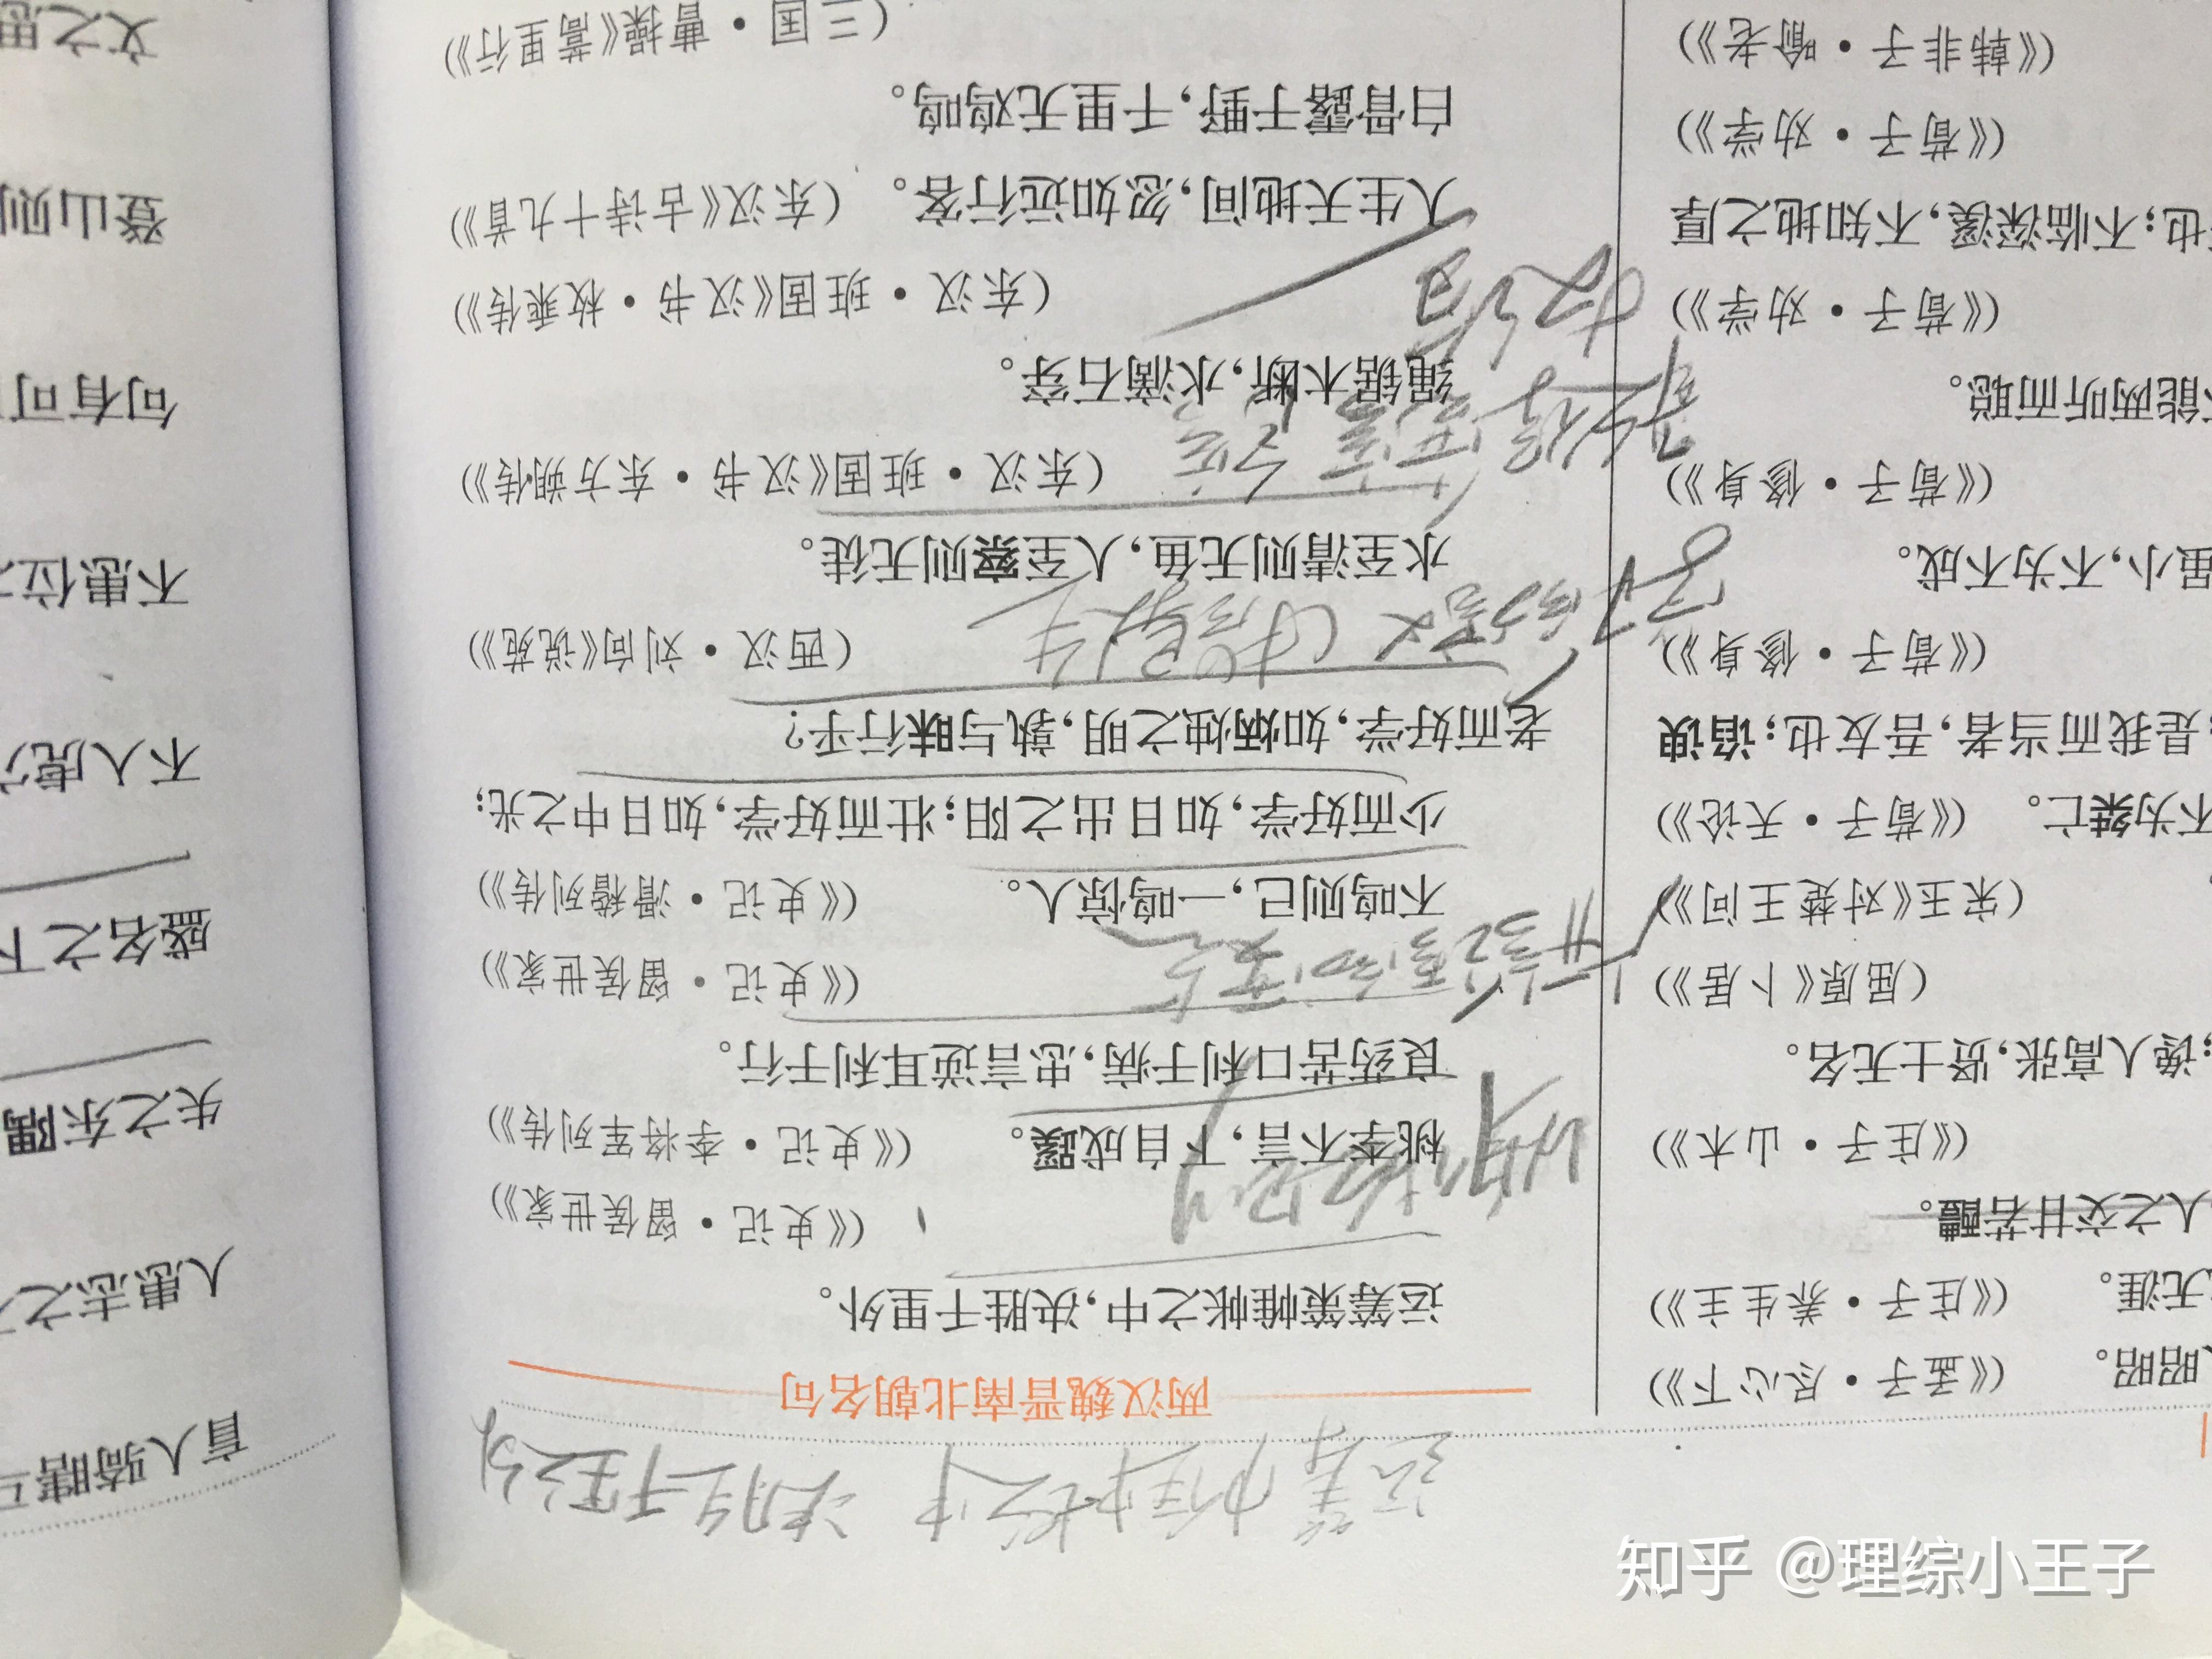 昭昭。 (《孟子·尽心下》)
无涯。 (《庄子·养生主》)
人之交甘若醴。
(《庄子·山木》)
;谗人高张,贤士无名。
(屈原《卜居》)
(宋玉《对楚王问》)
不为桀亡。 (《荀子·天论》)
是我而当者,吾友也;谄谀
(《荀子·修身》)
虽小,不为不成。
(《荀子·修身》)
能两听而聪。
(《荀子·劝学》)
也;不临深溪,不知地之厚
(《荀子·劝学》)
(《韩非子·喻老》)
运筹帷幄之中 决胜千里之外
两汉魏晋南北朝名句
运筹策帷帐之中,决胜千里外。
(《史记·留侯世家》)
桃李不言,下自成蹊。 (《史记·李将军列传》)
良药苦口利于病,忠言逆耳利于行。
(《史记·留侯世家》)
不鸣则已,一鸣惊人。 (《史记·滑稽列传》)
少而好学,如日出之阳;壮而好学,如日中之光;
老而好学,如炳烛之明,孰与昧行乎?
(西汉·刘向《说苑》)
水至清则无鱼,人至察则无徒。
(东汉·班固《汉书·东方朔传》)
绳锯木断,水滴石穿。
(东汉·班固《汉书·枚乘传》)
人生天地间,忽如远行客。 (东汉《古诗十九首》)
白骨露于野,千里无鸡鸣。
(三国·曹操《蒿里行》)
盲人骑瞎
人患志之
失之东隅
盛名之下
不入虎穴
不患位
句有可
登山则
文之思
知乎 @理综小王子